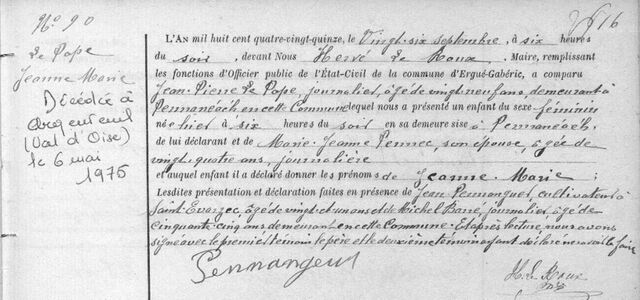 Nº 90
Le Pape
Jeanne Marie
Décédée à
Argenteuil
(Val d'Oise)
le 6 mai
1975
16
L'AN mil huit cent quatre-vingt-quinze, le Vingt-six septembre, à six heures
du soir, devant Nous Hervé Le Roux, Maire, remplissant
les fonctions d'Officier public de l'État-Civil de la commune d'Ergué-Gabéric, a comparu
Jean Pierre Le Pape, journalier, âgé de vingt neuf ans, demeurant à
Pennanéach en cette Commune lequel nous a présenté un enfant du sexe féminin
né hier à six heures du soir en sa demeure sise à Pennanéach,
de lui déclarant et de Marie-Jeanne Pennec, son épouse, âgée de
vingt-quatre ans, journalière
et auquel enfant il a déclaré donner les prénoms de Jeanne-Marie;
Lesdites présentation et déclaration faites en présence de Jean Pennanguer, cultivateur à
Saint-Evarzec, âgé de vingt-et-un ans et de Michel Barré, journalier, âgé de
cinquante-cinq ans, demeurant en cette Commune. Et après lecture, nous avons
signé avec le premier témoin, le père et le deuxième témoin ayant déclaré ne savoir le faire
Pennangeur
H. Le Roux